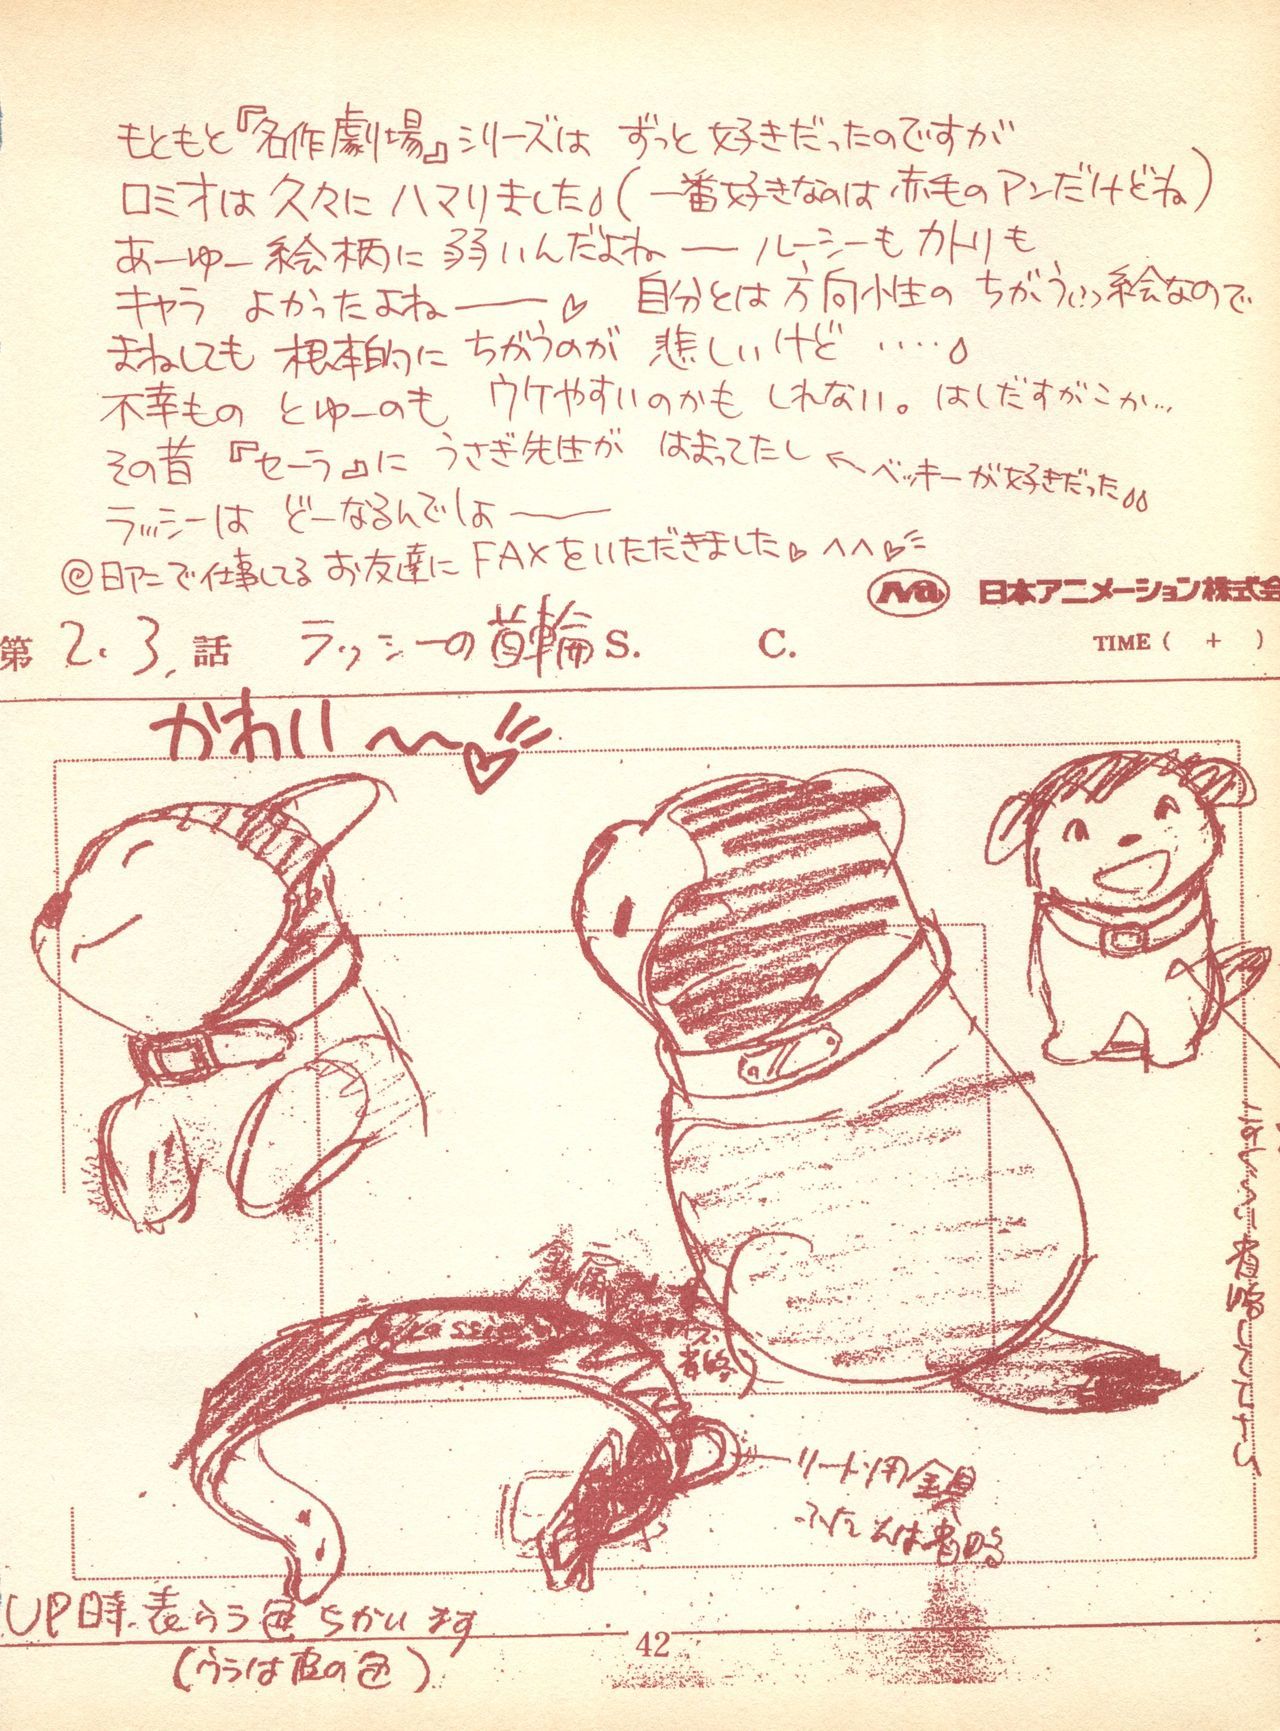 もともと『名作劇場』シリーズは ずっと好きだったのですが
ロミオは久々にハマりました。(一番好きなのは赤毛のアンだけどね)
あーゆー絵柄に弱いんだよねー ルーシーもカトリも
キャラ よかったよねー♡ 自分とは方向性の ちがうっ絵なので
まねしても 根本的に ちがうのが 悲しいけど ‥‥。
不幸もの とゆーのも ウケやすいのかも しれない。はしだすがこか…
その昔『セーラ』に うさぎ先生が はまってたし ←ベッキーが好きだった
ラッシーは どーなるんでしょー
@日アニで仕事してる お友達に FAXをいただきました♡ ^^♡
Na 日本アニメーション株式会
第 2.3. 話 ラッシーの首輪 S. C. TIME ( + )
かわい〜♡
金属
Lassie
省略
リード用金具
ふだんは省略
UP時.表うら色ちがいます
(ウラは皮の色)
42